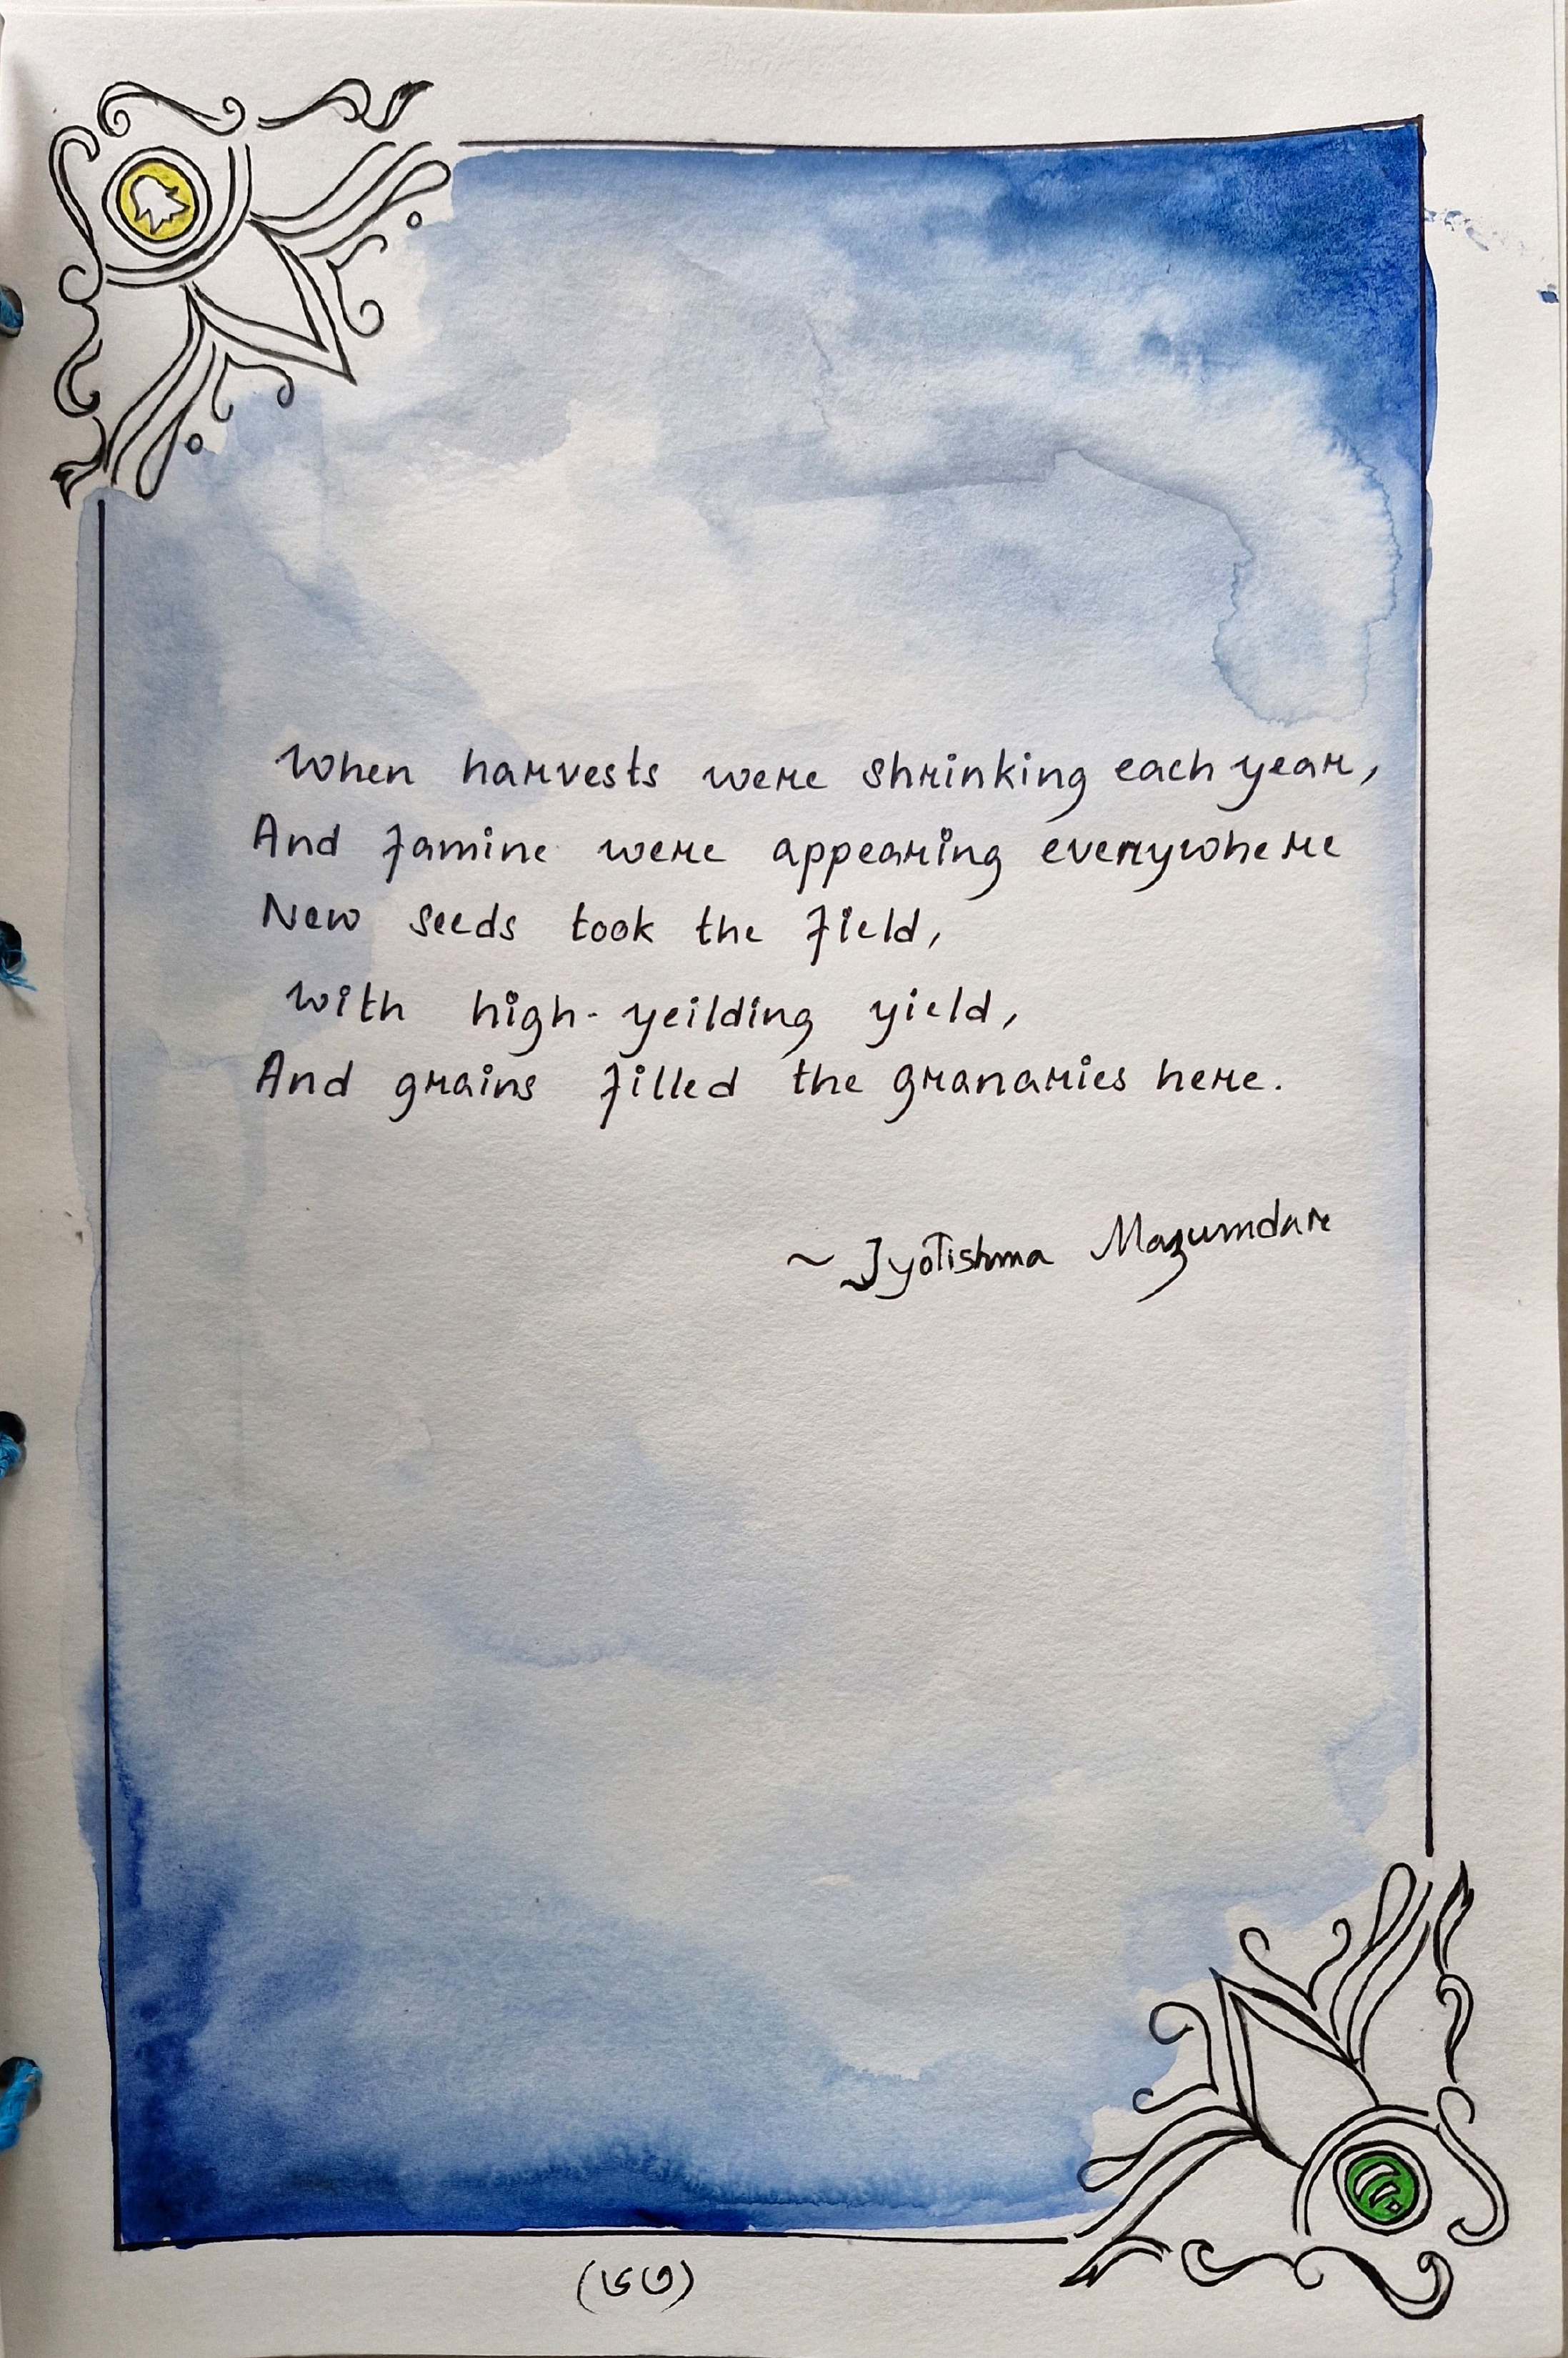 When harvests were shrinking each year,
And famine were appearing everywhere
New seeds took the field,
With high-yeilding yield,
And grains filled the granaries here.
~ Jyotishma Mazumdar
(৬৩)